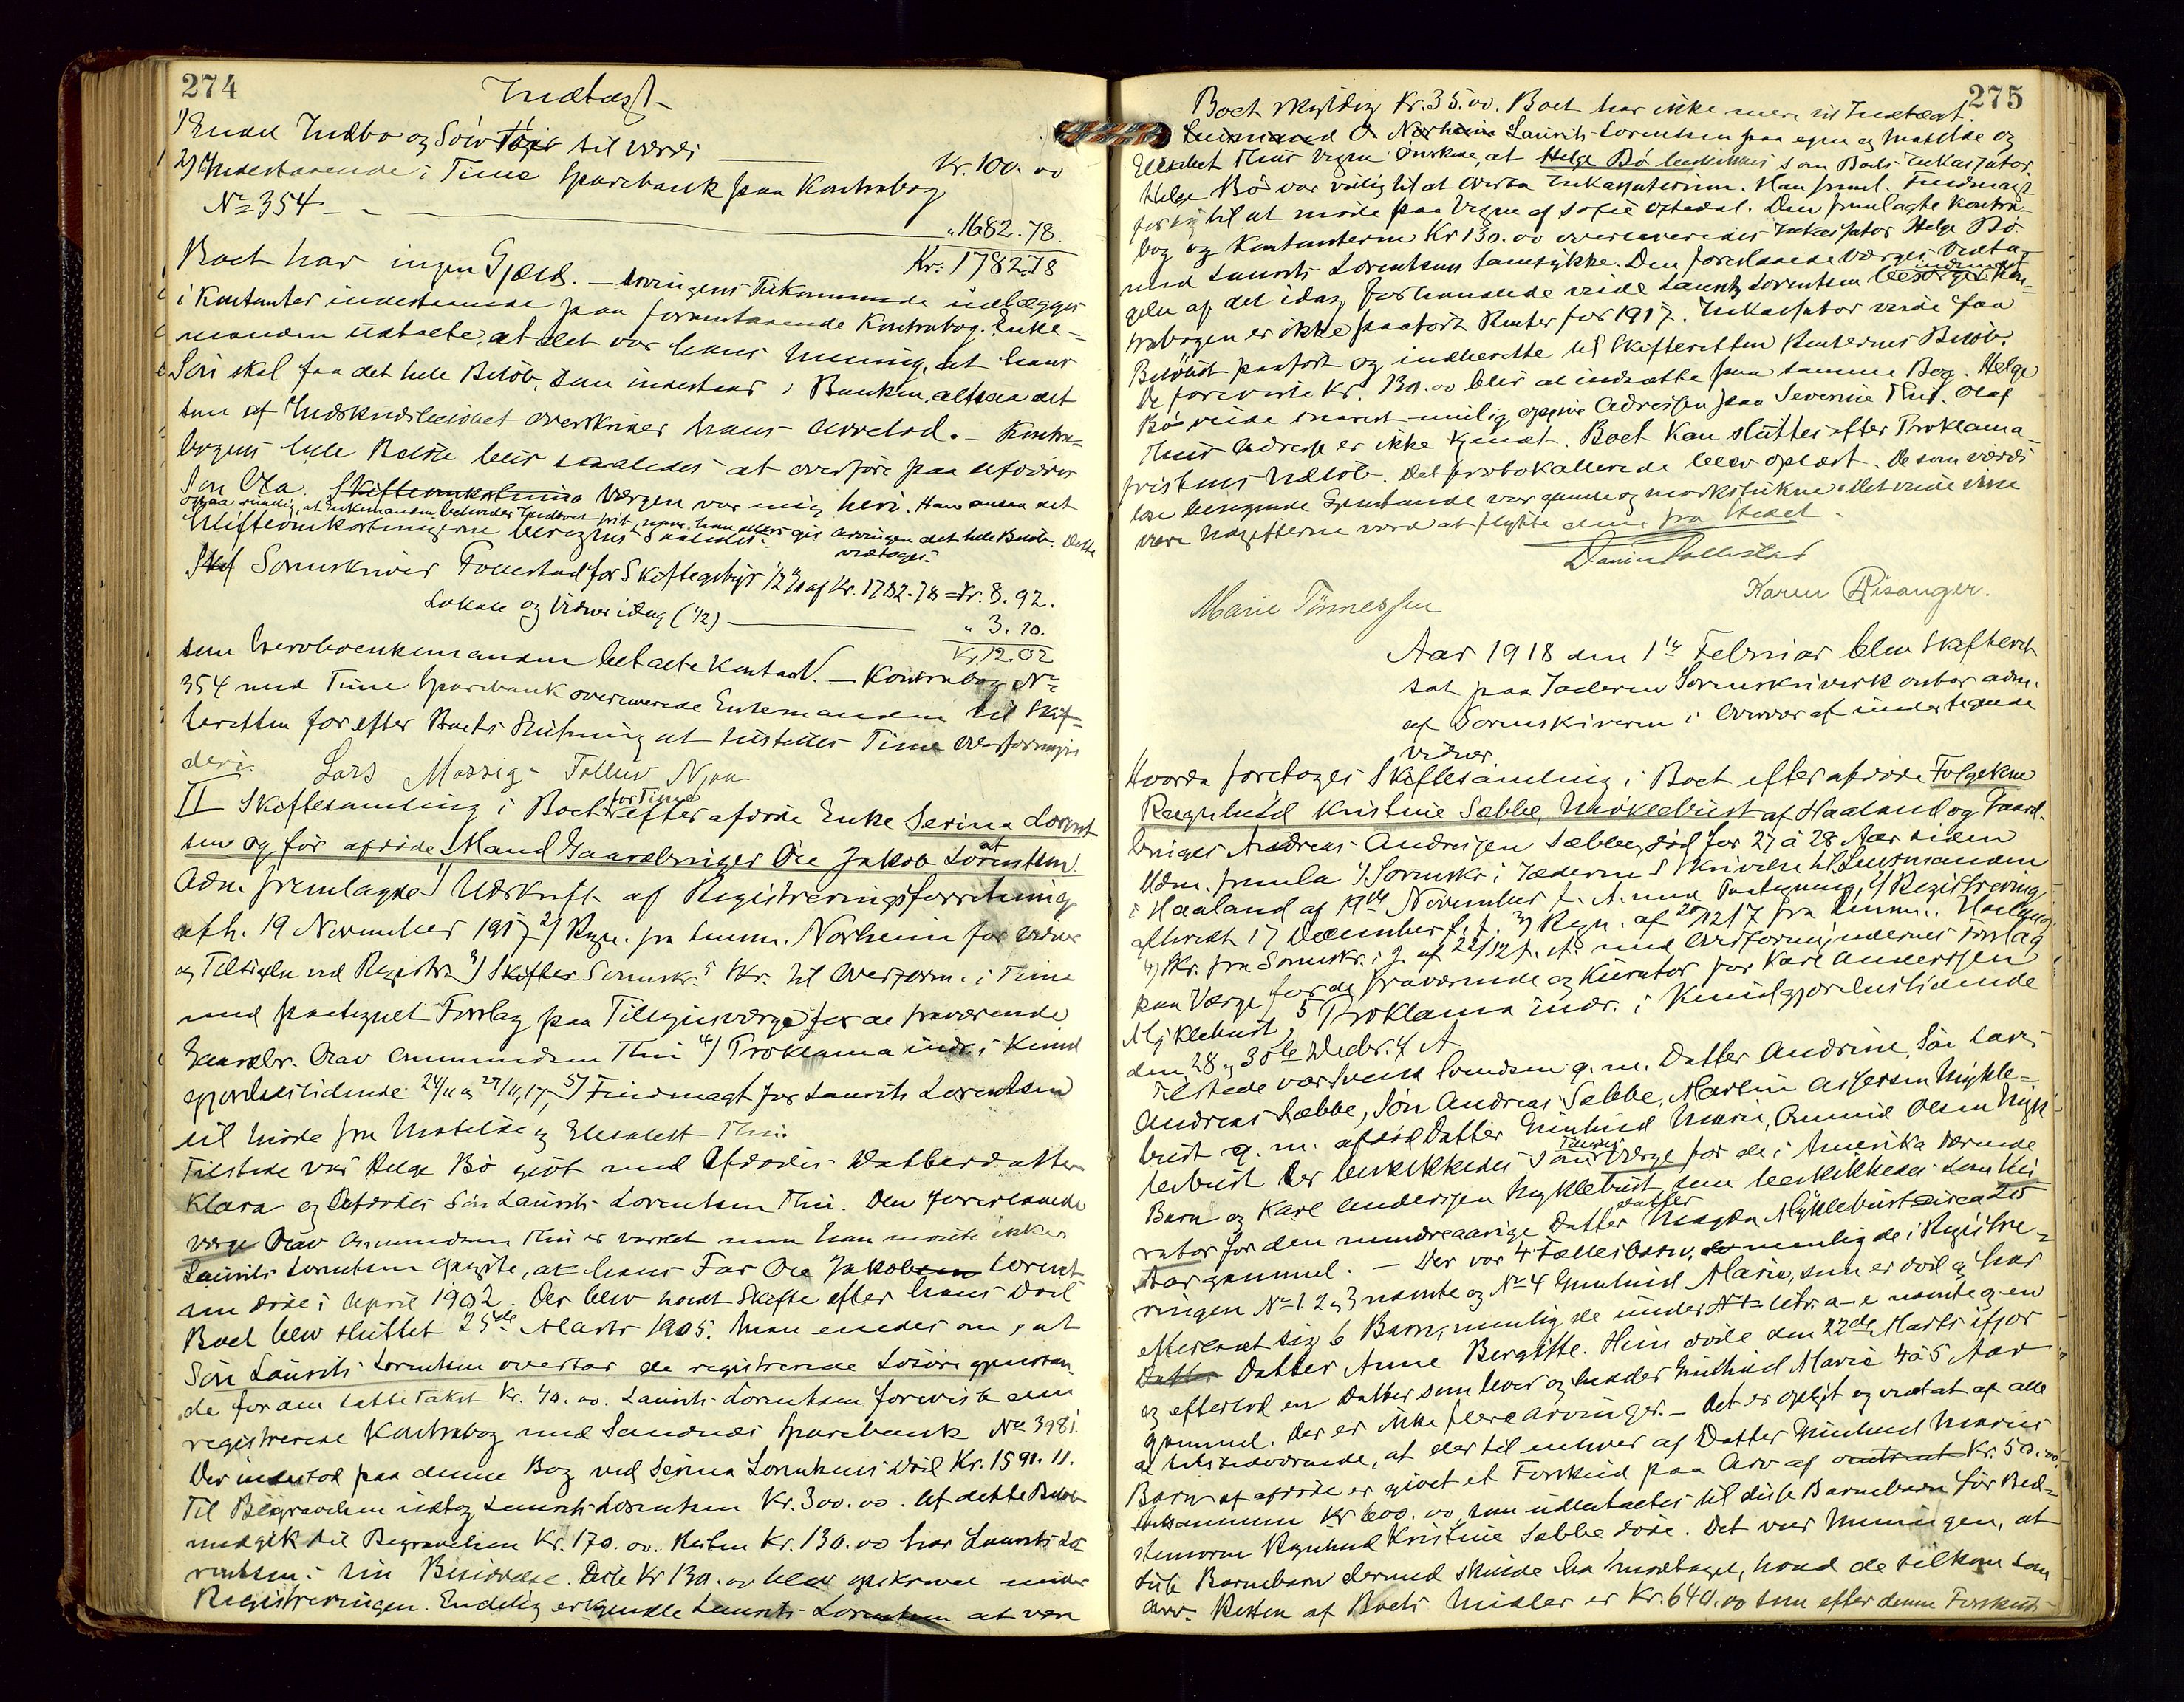 274
Indtægt
1) Endel Indbo og Sölvtöier til værdi
Kr. 100.00
2) Indestaaende i Time Sparebank paa Kontrabog
No 354
" 1682.78
Kr. 1782.78
Boet har ingen Gjæld. — Arvingens Tilkommende indlægges
i Kontanter indestaaende paa foranstaaende Kontrabog. Enke-
manden udtalte, at det var hans Mening, at hans
Sön skal faa det hele Belöb, som indestaar i Banken, altsaa det
som overskrider hans Arvelod. — Kontra-
bogens hele Belöb blir saaledes at overföre paa afdödes
Sön Ola. Skifteomkostning Værgen var enig heri. Han ansaa det
ogsaa rimelig, at Enkemanden beholder Indboet frit, naar han ellers gir Arvingen det hele Belöb. Dette
Skifteomkostningerne beregnes saaledes:
vedtoges.
Skif Sorenskriver Follestad for Skiftegebyr 1/2 % af Kr. 1782.78 = Kr. 8.92.
Lokale og Vidner idag (1/2)
" 3.10.
Kr. 12.02
som betalte kontant. — Kontrabog No
354 med Time Sparebank overleverede Enkemanden til Skif-
teretten for efter Boets Slutning at tilstilles Time Overformyn
deri. Lars Mossige Tollev Njaa
II Skiftesamling i Boet for Time efter afdöde Enke Serina Lorent
sen og för afdöde Mand Gaardbruger Ole Jakob Lorentsen.
Adm. fremlagde 1) Udskrift af Registreringsforretning
afh. 19 November 1917 2) Regn. fra Lensm. Norheim for Vidner
og Tilsigelse ved Registr. 3) Skifter Sorenskr.s Skr. til Overform. i Time
med paategnet Forslag paa Tilsynsværge for de fraværende
Gaardbr. Olav Ommundsen Thu 4) Proklama indr. i Kund
gjörelsestidende 24/11 og 27/11.17, 5) Fuldmagt for Laurits Lorentsen
til Möde fra Matilde og Elesabet Thu.
Tilstede var Helge Bö givt med Afdödes Datterdatter
Klara og Afdödes Sön Laurits Lorentsen Thu. Den foreslaaede
Værge Olav Ommundsen Thu er varslet men han mödte ikke
Laurits Lorentsen opgjøte, at hans Far Ole Jakobsen Lorent
sen döde i April 1902. Der blev holdt Skifte efter hans Död
Boet blev sluttet 25de Marts 1905. Man enedes om, at
Sön Laurits Lorentsen overtar de registrerede Lösöregjenstan
de for den satte Takst Kr. 40.00. Laurits Lorentsen foreviste den
registrerede Kontrabog med Sandnes Sparebank No 3981.
Der indestod paa denne Bog ved Serina Lorentsens Död Kr. 1591.11.
Til Begravelsen udtog Laurits Lorentsen Kr. 300.00. Af dette Belöb
medgik til Begravelsen Kr. 170.00. Resten Kr. 130.00 har Laurits Lo
rentsen i sin Besiddelse. Disse Kr 130.00 blev opskrevet under
Registreringen. Endelig erkjendte Laurits Lorentsen at være
275
Boet skyldig Kr. 35.00. Boet har ikke mere til Indtægt.
Lensmand O. Norheim Laurits Lorentsen paa egne og Matilde og
Elesabet Thus Vegne önskede, at Helge Bö beskikkes som Boets Inkassator.
Helge Bö var villig til at overta Inkassatorium. Han freml. Fuldmagt
for sig til at möde paa Vegne af Sofie Oftedal. Den fremlagte Kontra-
bog og Kontanterne Kr 130.00 overleveredes Inkassator Helge Bö
med Laurits Lorentsens Samtykke. Den foreslaaede Værges Vedta-
gelse af det idag forhandlede vilde Laurits Lorentsen besörge indhentet. Kon-
trabogen er ikke paafört Renter for 1917. Inkassator vilde faa
Belöbet paafört og indberette til Skifteretten Renternes Belöb.
De foreviste Kr. 130.00 blir at indsætte paa samme Bog. Helge
Bö vilde snarest mulig opgive Adressen paa Severine Thu. Olaf
Thus Adresse er ikke kjendt. Boet kan sluttes efter Proklama-
fristens Udlöb. Det protokollerede blev oplæst. De som værdi
löse besegnede Gjenstande var gamle og markstukne. Det vilde ikke
være Udgifterne værd at flytte denne fra Stedet.
Daniel Follestad
Marie Tönnessen
Karen Risanger.
Aar 1918 den 1ste Februar blev Skifteret
sat paa Jæderens Sorenskriverkontor adm.
af Sorenskriveren i Overvær af undertegnede
Vidner.
Hvorda foretoges Skiftesamling i Boet efter afdöde Folgekone
Ragnhild Kristine Sæbbe, Myklebust af Haaland og Gaard-
bruger Andreas Andreassen Sæbbe, död for 27 à 28 Aar siden
Adm. fremla 1) Sorenskr. i Jæderens Skrivelse til Lensmanden
i Haaland af 19de November f. A. med Paategning, 2) Registrering
afholdt 17 December f. A. 3) Regn. af 20/12 17 fra Lensm. i Haaland
4) Skr. fra Sorenskr. i J. af 22/12 f. A. med Overformyndernes Forslag
paa Værge for de fraværende og Kurator for Karl Anderssen
Myklebust, 5 Proklama indr. i Kundgjörelsestidende
den 28 og 31te Decbr. f. A
Tilstede var Svend Svendsen g.m. Datter Andrine, Sön Lars
Andreas Sæbbe, Sön Andreas Sæbbe, Martin Asgersen Mykle-
bust g.m. afdöd Datter Gunhild Marie, Ommund Olsen Myk
lebust der beskikkedes som Tilsynsværge for de i Amerika værende
Börn og Karl Anderssen Myklebust som beskikkedes som Ku
rator for den mindreaarige Datter datter Magda Myklebust circa 20
Aar gammel. — Der var 4 Fællesbörn, nemlig de i Registre-
ringen No 1 2 og 3 nævnte og No 4 Gunhild Marie, som er död og har
efterladt sig 6 Barn, nemlig de under No 4 litra a-e nævnte og en
Datter Datter Anne Bergitte. Hun döde den 22de Marts ifjor
og efterlod en Datter som lever og heder Gunhild Marie 4 à 5 Aar
gammel. Der er ikke flere Arvinger. — Det er oplyst og vedtat af alle
de tilstedeværende, at der til enhver af Datter Gunhild Maries
Barn af afdöde er givet et Forskud paa Arv af omtrent Kr. 50.00.
tilsammen Kr 600.00, som udbetaltes til disse Barnebarn för Bed-
stemoren Ragnhild Kristine Sæbbe döde. Det var Meningen, at
disse Barnebarn dermed skulde ha modtaget, hvad de tilkom som
Arv. Resten af Boets Midler er Kr. 640.00 som efter denne Forskuds-